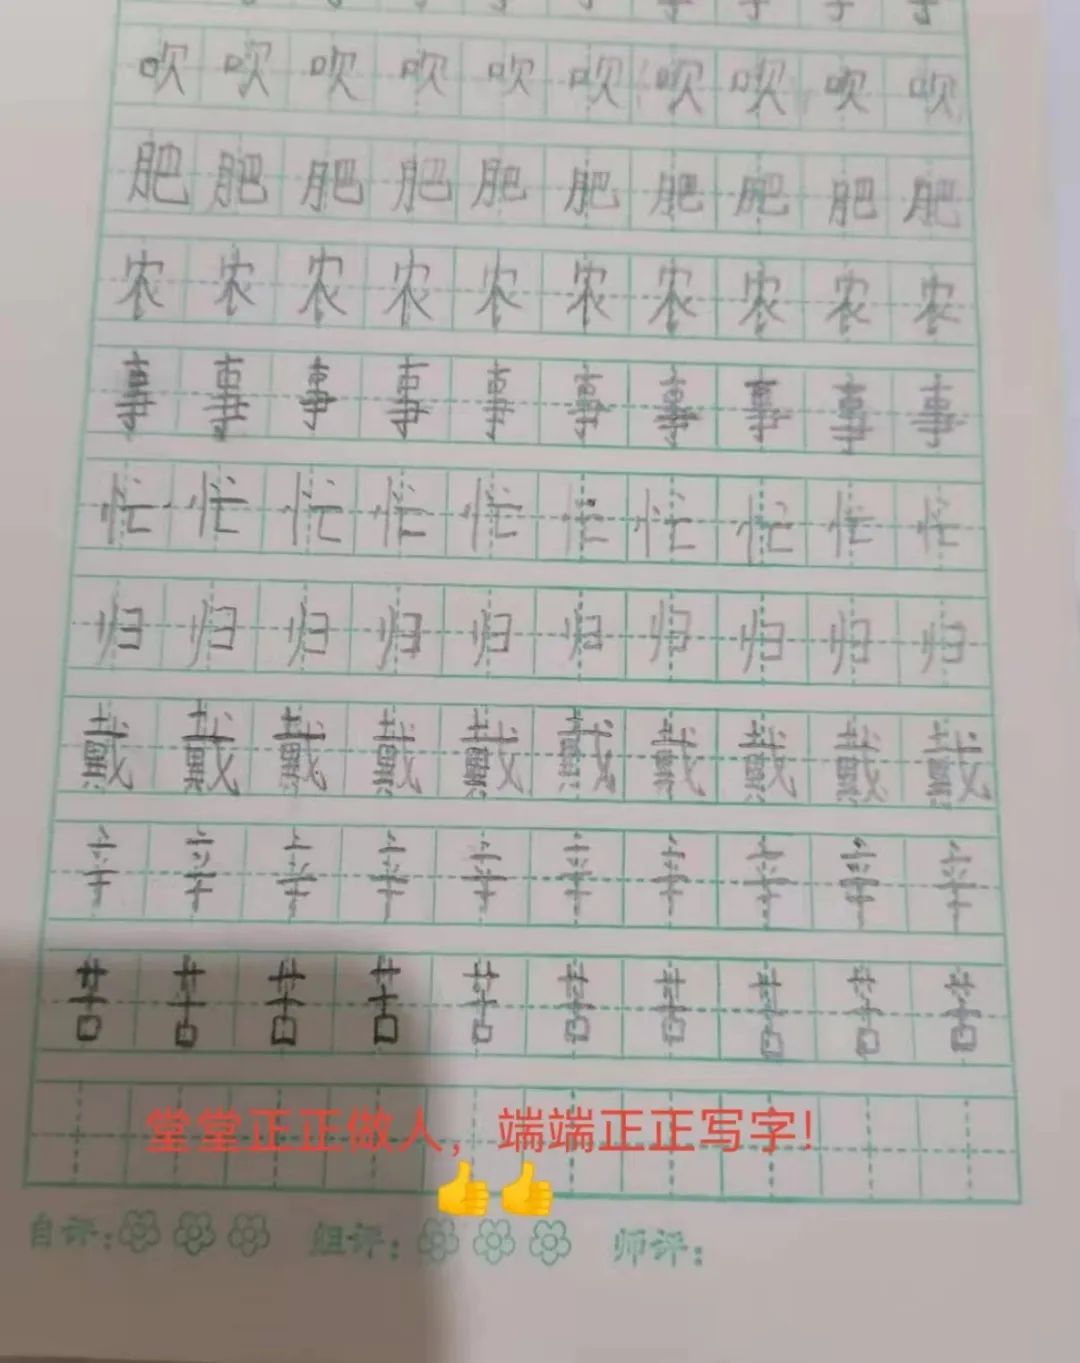 吹吹吹吹吹吹吹吹吹吹
肥肥肥肥肥肥肥肥肥肥
农农农农农农农农农农
事事事事事事事事事事
忙忙忙忙忙忙忙忙忙忙
归归归归归归归归归归
戴戴戴戴戴戴戴戴戴戴
辛辛辛辛辛辛辛辛辛辛
苦苦苦苦苦苦苦苦苦苦
堂堂正正做人，端端正正写字！
自评： 组评： 师评：